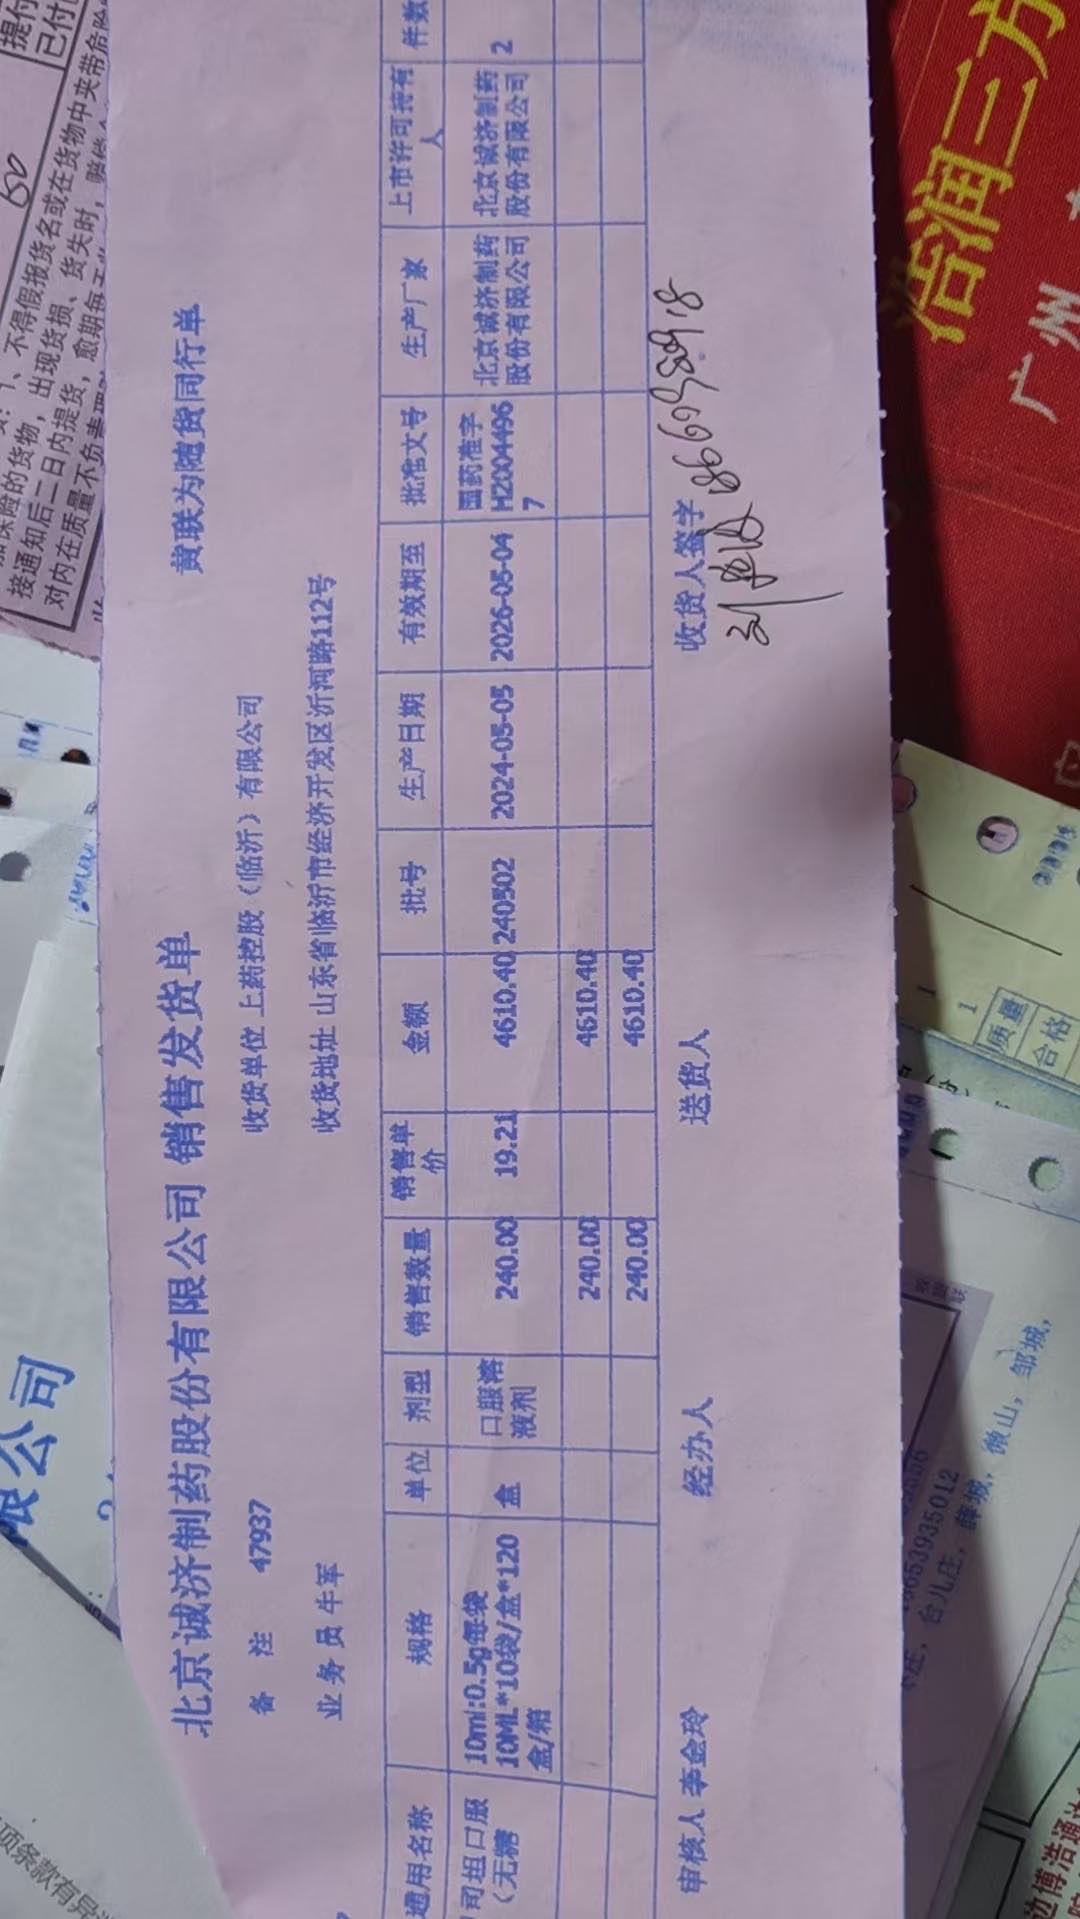 北京诚济制药股份有限公司 销售发货单
黄联为随货同行单
备 注 47937
收货单位 上药控股（临沂）有限公司
业务员 牛军
收货地址 山东省临沂市经济开发区沂河路112号
通用名称 规格 单位 剂型 销售数量 销售单价 金额 批号 生产日期 有效期至 批准文号 生产厂家 上市许可持有人 件数
司坦口服
（无糖
10ml:0.5g每袋
10ML*10袋/盒*120
盒/箱
盒
口服溶
液剂
240.00 19.21 4610.40 240502 2024-05-05 2026-05-04
国药准字
H2004496
7
北京诚济制药
股份有限公司
北京诚济制药
股份有限公司
2
240.00 4610.40
240.00 4610.40
审核人 李金玲 经办人 送货人 收货人签字
接通知后二日内提货，愈期每
对内在质量不负责理
不得假报货名或在货物中夹带危险
保险的货物，出现货损、货失时，
提付
已付
60
限公司
项条款有异
浩润三方
广州
质量
合格
1
1
台儿庄，薛城，微山，邹城，
博浩通